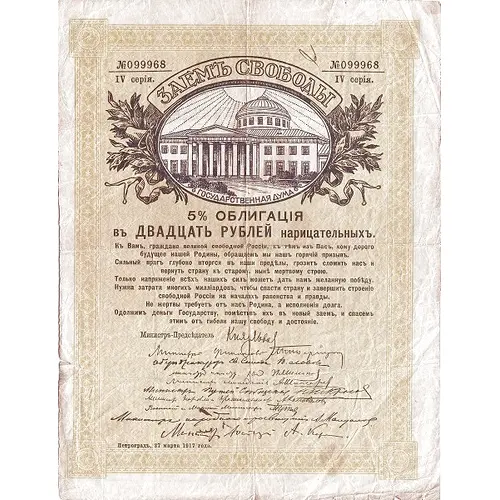 №099968 №099968
IV серія. IV серія.
ЗАЕМЪ СВОБОДЫ
ГОСУДАРСТВЕННАЯ ДУМА
5% ОБЛИГАЦІЯ
въ ДВАДЦАТЬ РУБЛЕЙ нарицательныхъ.
Къ Вамъ, граждане великой свободной Россіи, къ тѣмъ изъ Васъ, кому дорого
будущее нашей Родины, обращаемъ мы нашъ горячій призывъ.
Сильный врагъ глубоко вторгся въ наши предѣлы, грозитъ сломить насъ и
вернуть страну къ старому, нынѣ мертвому строю.
Только напряженіе всѣхъ нашихъ силъ можетъ дать намъ желанную побѣду.
Нужна затрата многихъ милліардовъ, чтобы спасти страну и завершить строеніе
свободной Россіи на началахъ равенства и правды.
Не жертвы требуетъ отъ насъ Родина, а исполненія долга.
Одолжимъ деньги Государству, помѣстивъ ихъ въ новый заемъ, и спасемъ
этимъ отъ гибели нашу свободу и достояніе.
Министръ-Предсѣдатель
Министръ
Петроградъ, 27 марта 1917 года.